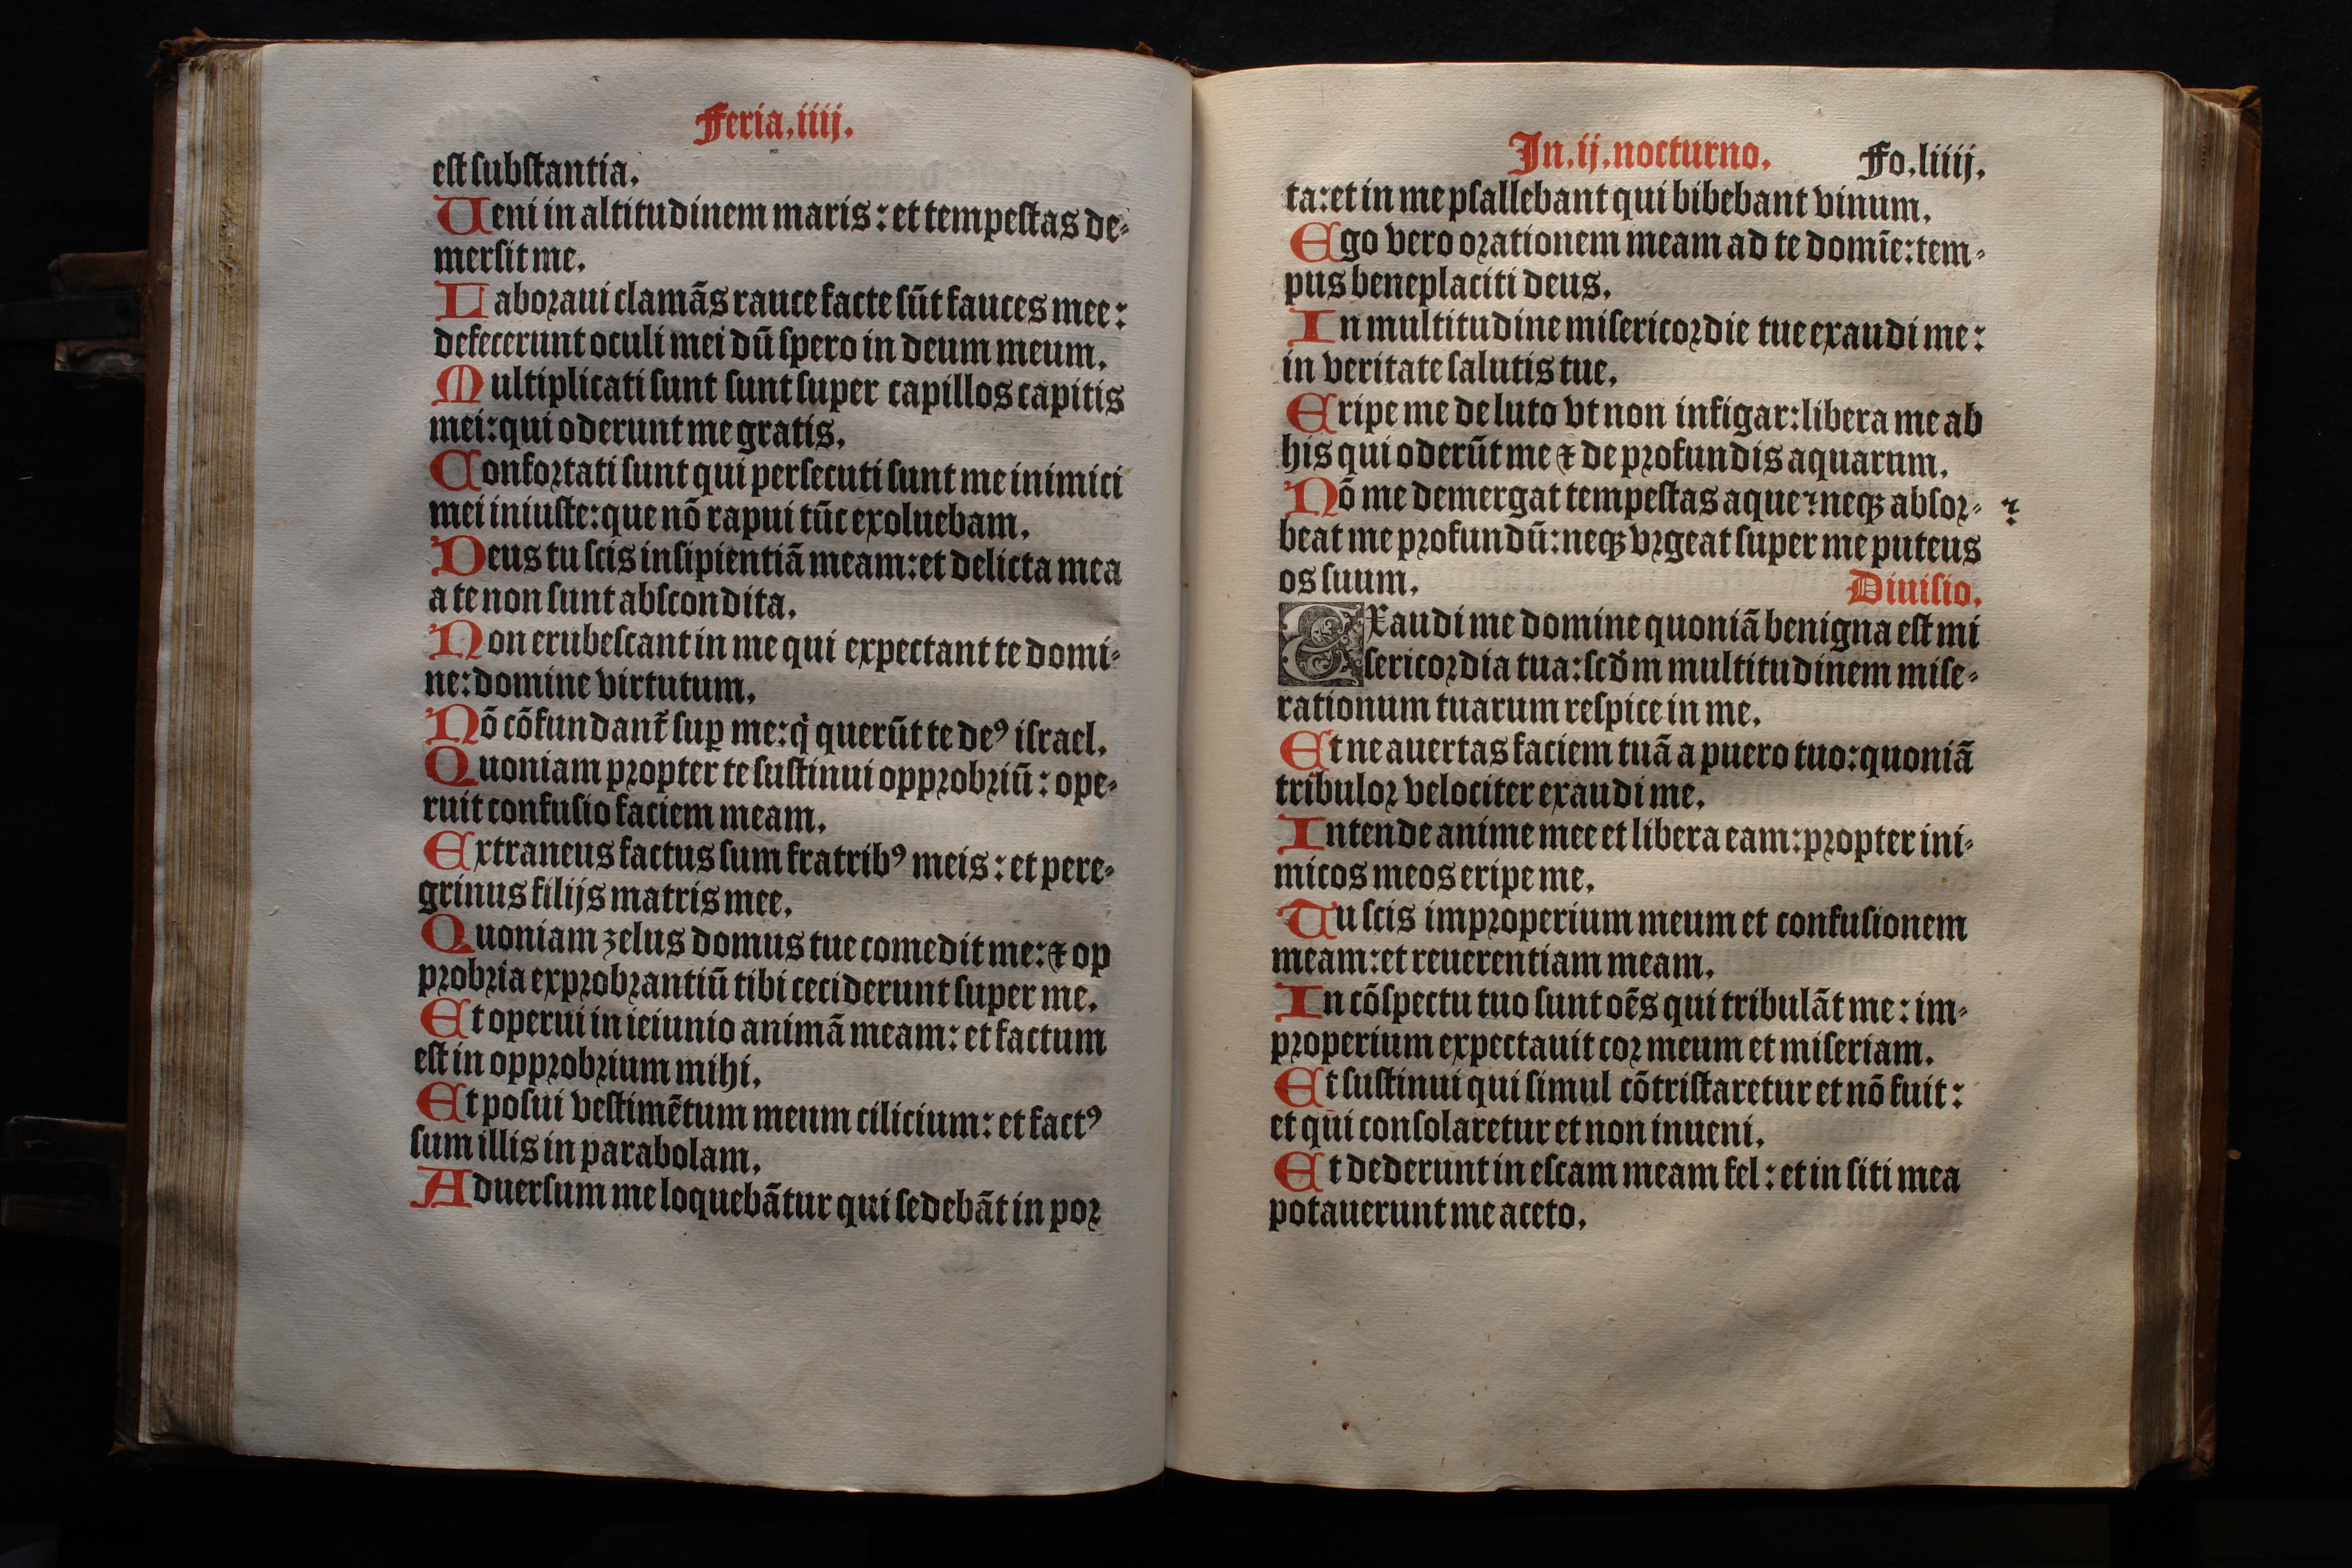 Feria.iiij.
est substantia.
Ueni in altitudinem maris: et tempestas de-
mersit me.
Laboraui clamãs rauce facte sũt fauces mee:
defecerunt oculi mei dũ spero in deum meum.
Multiplicati sunt sunt super capillos capitis
mei: qui oderunt me gratis.
Confortati sunt qui persecuti sunt me inimici
mei iniuste: que nõ rapui tũc exoluebam.
Deus tu scis insipientiã meam: et delicta mea
a te non sunt abscondita.
Non erubescant in me qui expectant te domi-
ne: domine virtutum.
Nõ cõfundant᷑ suꝑ me: q̇ querũt te deꝰ israel.
Quoniam propter te sustinui opprobriũ: ope-
ruit confusio faciem meam.
Extraneus factus sum fratribꝰ meis: et pere-
grinus filijs matris mee.
Quoniam zelus domus tue comedit me: ⁊ op
probria exprobrantiũ tibi ceciderunt super me.
Et operui in ieiunio animã meam: et factum
est in opprobrium mihi.
Et posui vestimẽtum meum cilicium: et factꝰ
sum illis in parabolam.
Aduersum me loquebãtur qui sedebãt in por
In.ij.nocturno. Fo.liiij.
ta: et in me psallebant qui bibebant vinum.
Ego vero orationem meam ad te domĩe: tem-
pus beneplaciti deus.
In multitudine misericordie tue exaudi me:
in veritate salutis tue.
Eripe me de luto vt non infigar: libera me ab
his qui oderũt me ⁊ de profundis aquarum.
Nõ me demergat tempestas aque ⁊ neqꝫ absor- ⁊
beat me profundũ: neqꝫ vrgeat super me puteus
os suum. Diuisio.
EXaudi me domine quoniã benigna est mi
sericordia tua: scd̃m multitudinem mise-
rationum tuarum respice in me.
Et ne auertas faciem tuã a puero tuo: quoniã
tribulor velociter exaudi me.
Intende anime mee et libera eam: propter ini-
micos meos eripe me.
Tu scis improperium meum et confusionem
meam: et reuerentiam meam.
In cõspectu tuo sunt oẽs qui tribulãt me: im-
properium expectauit cor meum et miseriam.
Et sustinui qui simul cõtristaretur et nõ fuit:
et qui consolaretur et non inueni.
Et dederunt in escam meam fel: et in siti mea
potauerunt me aceto.